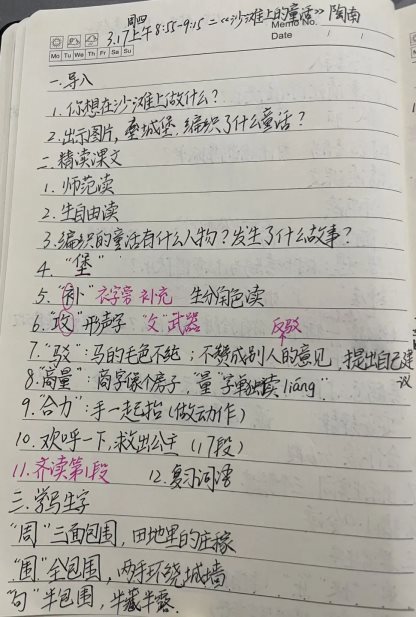 周四
3.17上午8:55-9:15 二《沙滩上的童话》 陶南
Memo No.
Mo Tu We Th Fr Sa Su
Date / /
一.导入
1.你想在沙滩上做什么?
2.出示图片,垒城堡,编织了什么童话?
二.精读课文
1.师范读
2.生自由读
3.编织的童话有什么人物?发生了什么故事?
4."堡"
5."补"衣字旁 补充 生分角色读
6."攻"形声字 "攵"武器 反驳
7."驳":马的毛色不纯;不赞成别人的意见,提出自己建议
8."商量":商字像个房子,"量"字单独读liáng
9."合力":手一起抬(做动作)
10.欢呼一下,救出公主(17段)
11.齐读第1段 12.复习词语
三.学写生字
"周"三面包围,田地里的庄稼
"围"全包围,两手环绕城墙
"句"半包围,半藏半露.